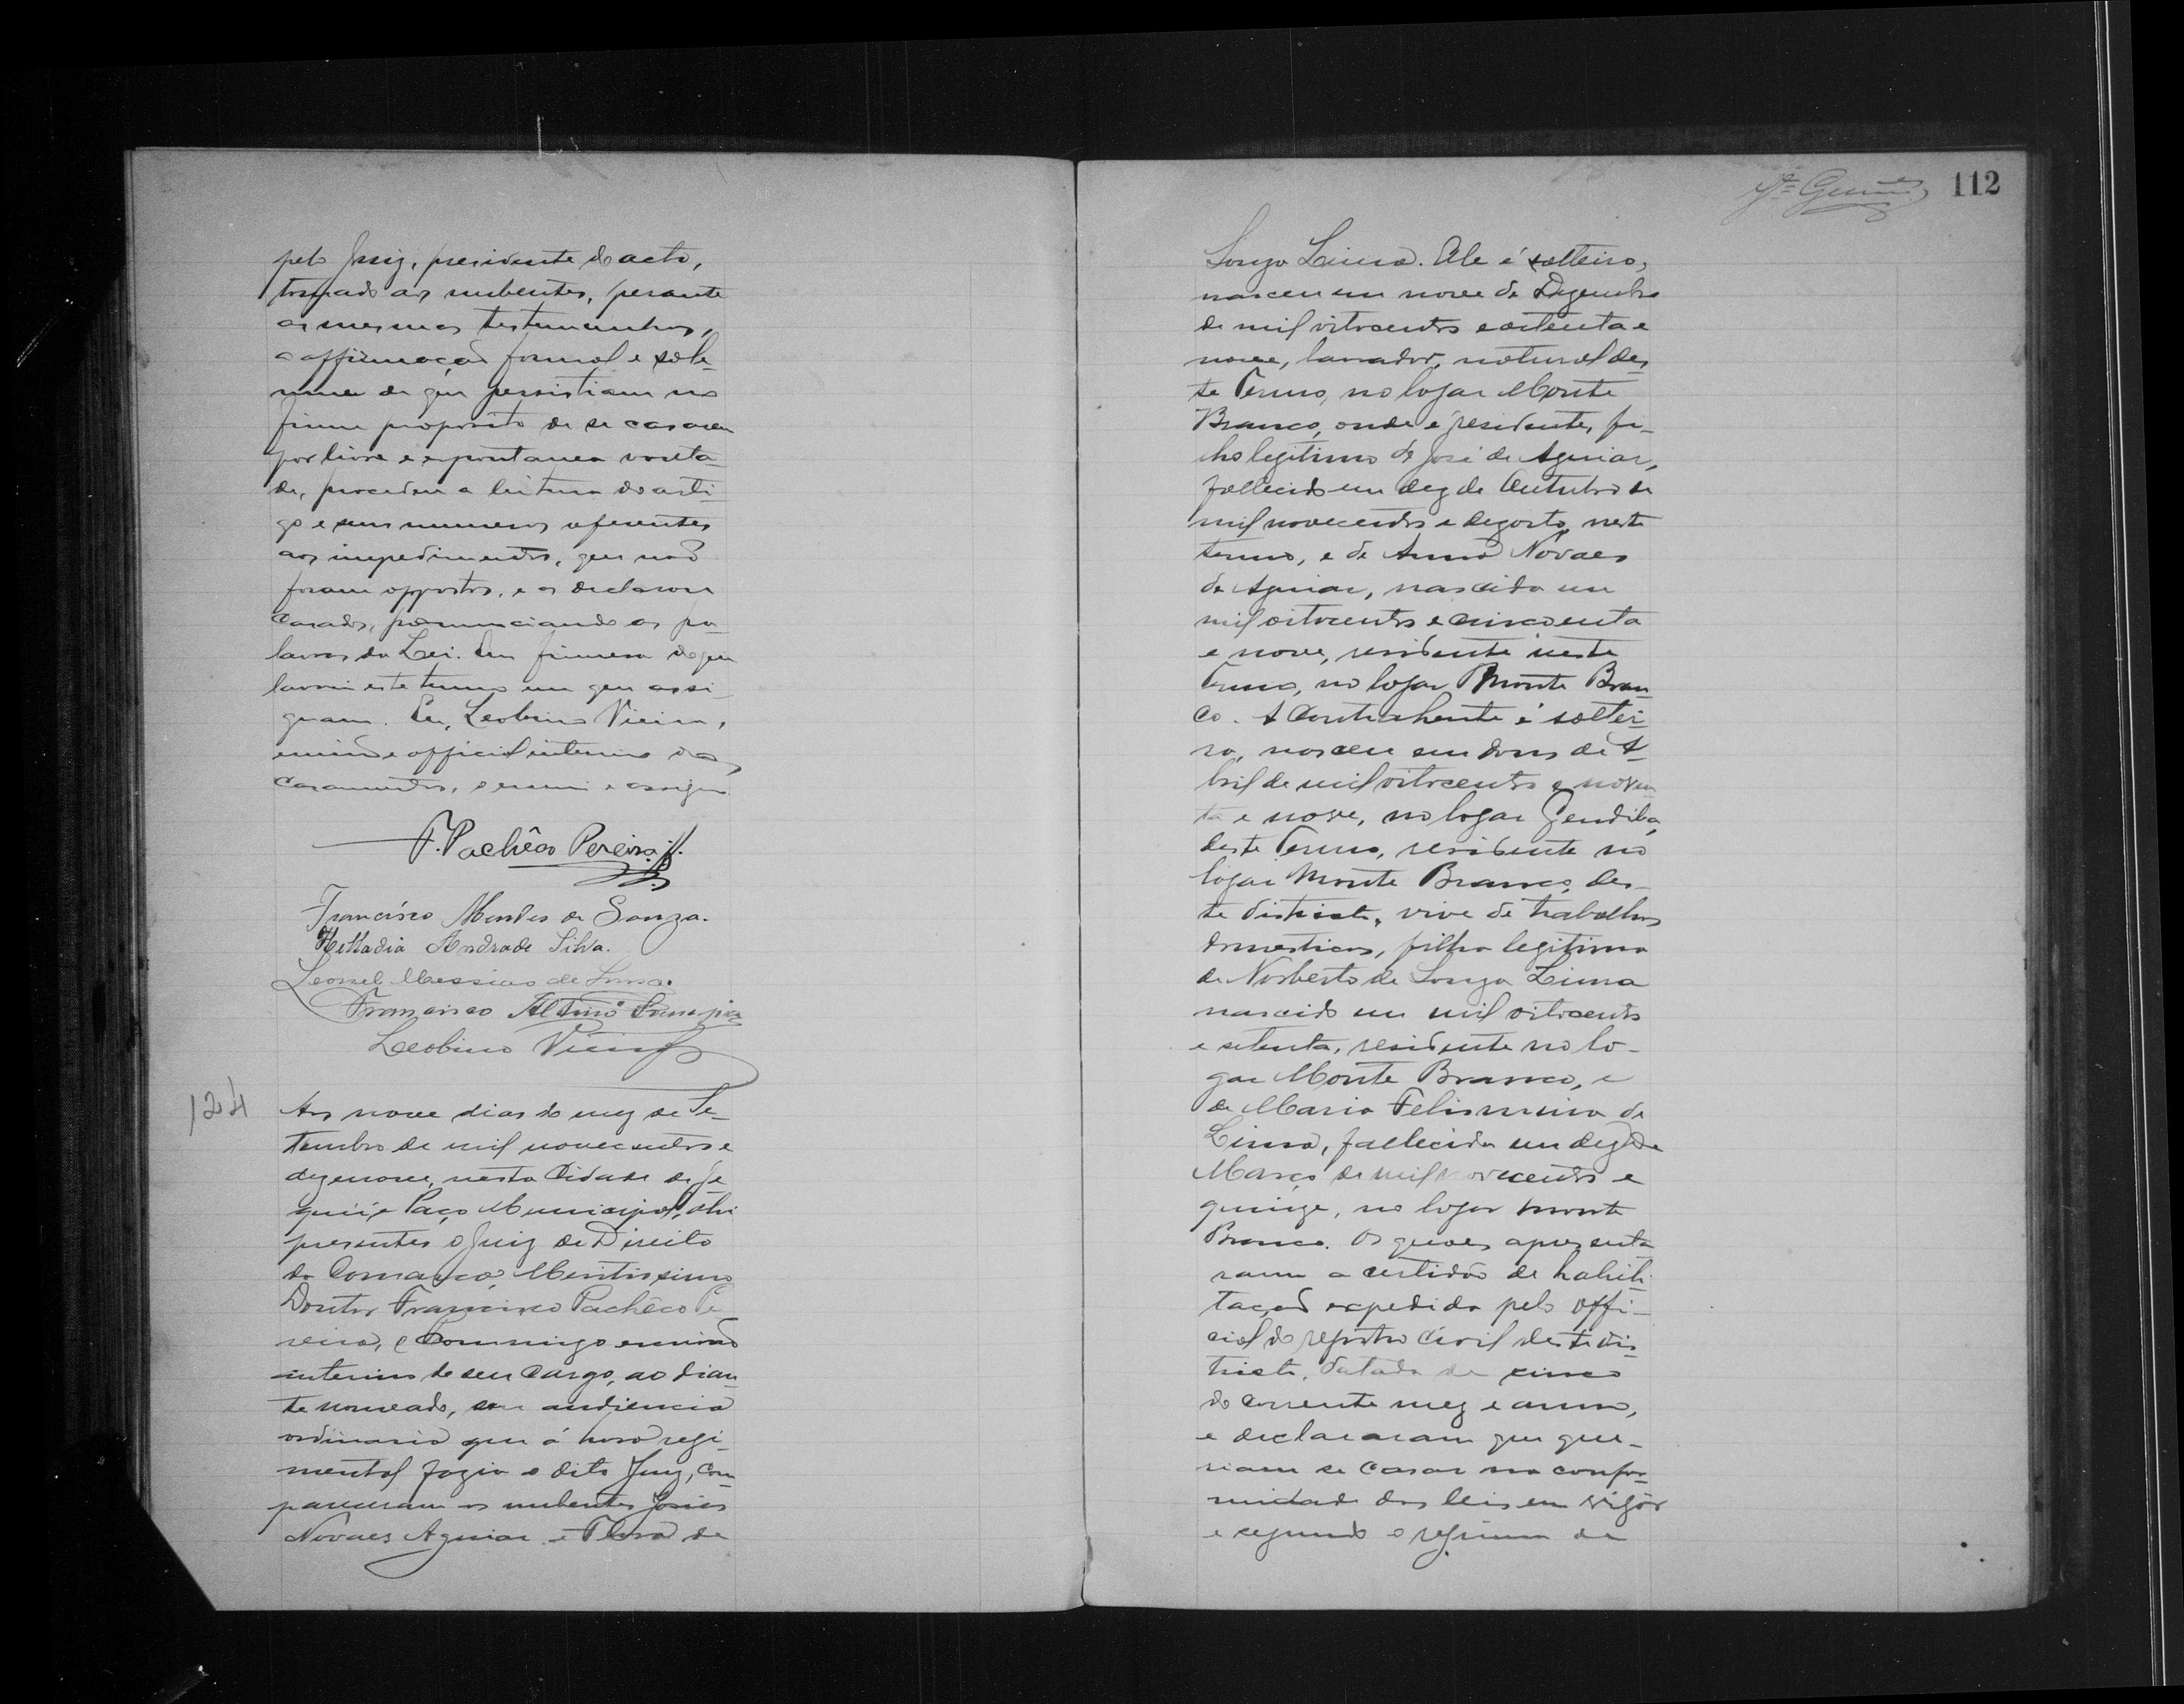 pelo Juiz, presidente do acto,
tomado aos nubentes, perante
as mesmas testemunhas,
a affirmação formal e sole-
mne de que persistiam no
firme proposito de se casarem
por livre e expontanea vonta-
de, procedeu a leitura do arti
go e seus numeros referentes
aos impedimentos, que não
foram oppostos, e os declarou
casados, pronunciando as pa-
lavras da Lei. Em firmesa do que
lavrei este termo em que assi-
gnam. Eu, Leobino Vieira,
escrivão e official interino dos
casamentos, escrevi e assigno
F. Pachêco Pereira
Francisco Mendes de Souza.
Helladia Andrade Silva.
Leonel Messias de Lima.
Francisco Altino
Leobino Vieira
124
Aos nove dias do mez de Se-
tembro de mil novecentos e
dezenove, nesta Cidade de Je
quié e Paço Municipal, ahi
presentes o Juiz de Direito
da Comarca, Meritissimo
Doutor Francisco Pachêco Pe
reira, e Commigo escrivão
interino de seu Cargo, ao dian
te nomeado, em audiencia
ordinaria que á hora regi-
mental fazia o dito Juiz, com
pareceram os nubentes Josias
Novaes Aguiar e Flora de
112
Souza Lima. Ele é solteiro,
nasceu em nove de Dezembro
de mil oitocentos e oitenta e
nove, lavrador, natural des-
te Termo, no logar Monte
Branco, onde é residente, fi-
lho legitimo de José de Aguiar,
fallecido em dez de Outubro de
mil novecentos e dezoito, neste
termo, e de Anna Novaes
de Aguiar, nascida em
mil oitocentos e cincoenta
e nove, residente neste
Termo, no logar Monte Bran
co. A Contrahente é soltei-
ra, nasceu em dous de A-
bril de mil oitocentos e noven
ta e nove, no logar Gendiba,
deste Termo, residente no
logar Monte Branco, des-
te districto, vive de trabalhos
domesticos, filha legitima
de Norberto de Souza Lima
nascido em mil oitocentos
e setenta, residente no lo-
gar Monte Branco, e
de Maria Felismina de
Lima, fallecida em dez de
Março de mil novecentos e
quinze, no logar Monte
Branco. Os quaes apresenta
ram a certidão de habili-
tação expedida pelo offi-
cial do registro Civil deste dis-
tricto, datada de cinco
do corrente mez e anno,
e declararam que que-
riam se casar na confor-
midade das leis em vigôr
e segundo o regimen de